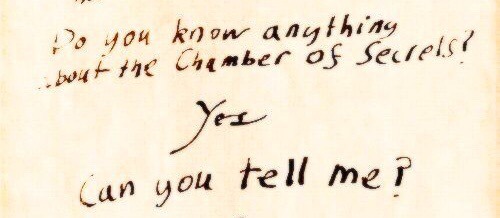 Do you know anything
about the Chamber of Secrets?
Yes
Can you tell me?